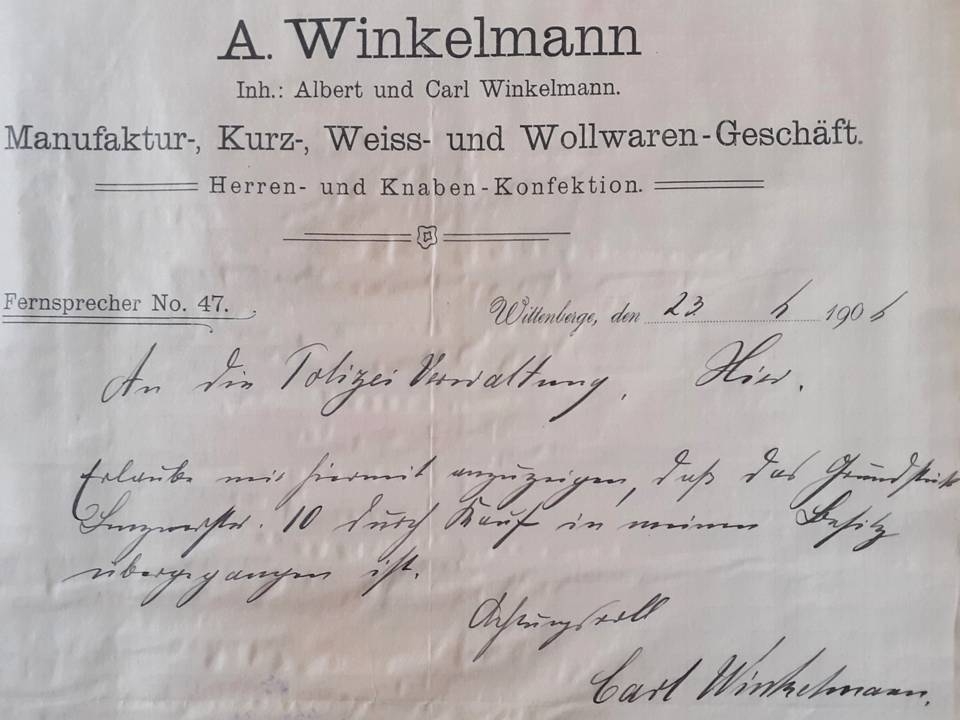 A. Winkelmann
Inh.: Albert und Carl Winkelmann.
Manufaktur-, Kurz-, Weiss- und Wollwaren-Geschäft.
Herren- und Knaben-Konfektion.
Fernsprecher No. 47.
Wittenberge, den 23 6 1906
An die Polizei Verwaltung, Hier.
Erlaube mir hiermit anzuzeigen, daß das Grundstück
10 durch Kauf in meinen Besitz
übergegangen ist.
Achtungsvoll
Carl Winkelmann.